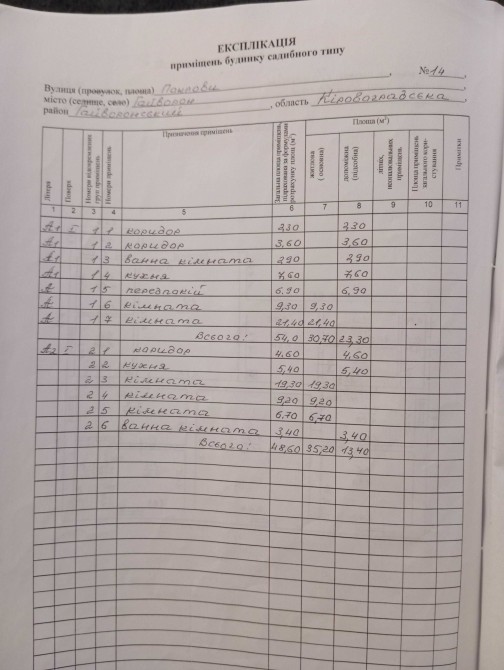 ЕКСПЛІКАЦІЯ
приміщень будинку садибного типу
№ 14
Вулиця (провулок, площа) Покрови
місто (селище, село) Гайворон, область Кіровоградська
район Гайворонський
Літера Поверх Номери відокремлених груп приміщень Номери приміщень Призначення приміщень Загальна площа приміщень, підрахована за формулами розрахунку площ (м²) Площа (м²) житлова (основна) допоміжна (підсобна) літніх, неопалювальних приміщень Площа приміщень загального користування Примітки
1 2 3 4 5 6 7 8 9 10 11
А1 І 1 1 коридор 2,30 2,30
А1 1 2 коридор 3,60 3,60
А1 1 3 ванна кімната 2,90 2,90
А1 1 4 кухня 7,60 7,60
А 1 5 передпокій 6,90 6,90
А 1 6 кімната 9,30 9,30
А 1 7 кімната 21,40 21,40
Всього: 54,0 30,70 23,30
А2 І 2 1 коридор 4,60 4,60
2 2 кухня 5,40 5,40
2 3 кімната 19,30 19,30
2 4 кімната 9,20 9,20
2 5 кімната 6,70 6,70
2 6 ванна кімната 3,40 3,40
Всього: 48,60 35,20 13,40